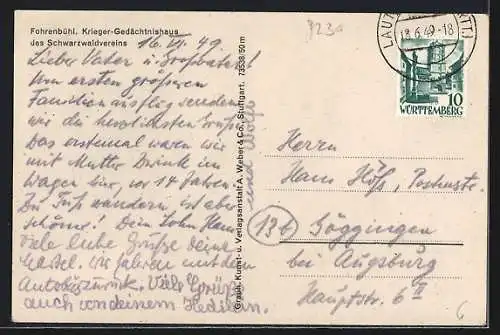 Fohrenbühl. Krieger-Gedächtnishaus
des Schwarzwaldvereins
16. VI. 49.
Lieber Vater u. Großvater!
Vom ersten größeren
Familienausflug senden
wir die herzlichsten Grüße
Das erstemal waren wir
mit Mutter
im
Wagen hier, vor 14 Jahren.
Zu Fuß wandern ist aber
schöner! Dein Sohn Hans
Viele liebe Grüße Dein
Wir fahren mit dem
Autobus zurück. Viele Grüße
auch von deinem
und Wolfg
Graph. Kunst- u. Verlagsanstalt A. Weber & Co., Stuttgart. 73538/50 m
323a
LAUT
18.6.49-18
10
WÜRTTEMBERG
Herrn
Hans Höß, Postinsp.
13b Göggingen
bei Augsburg
Hauptstr. 6 II